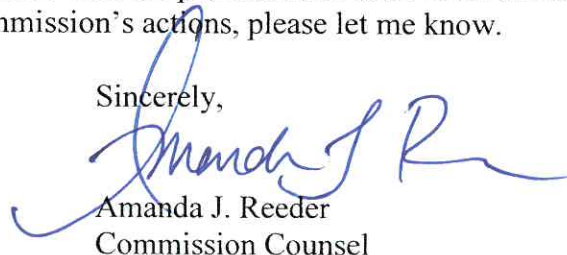 mmission's actions, please let me know.
Sincerely,
Amanda J R
Amanda J. Reeder
Commission Counsel